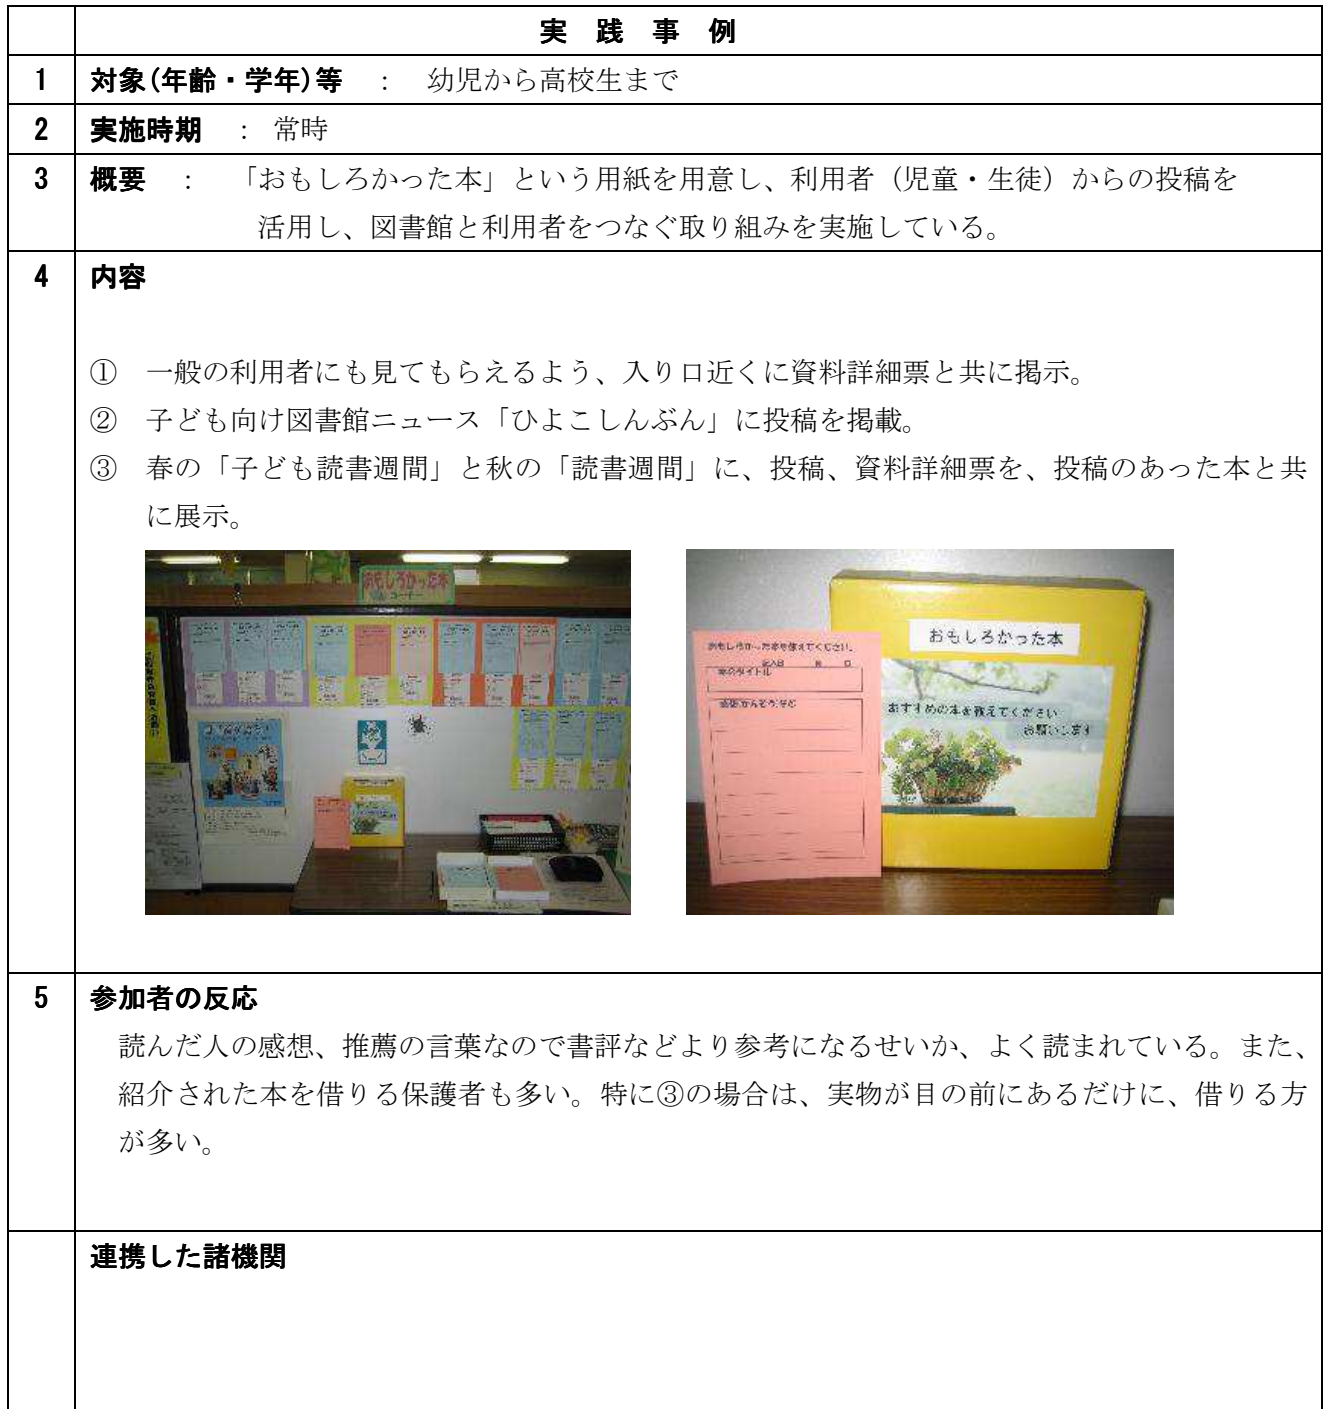 実 践 事 例
1 対象(年齢・学年)等 : 幼児から高校生まで
2 実施時期 : 常時
3 概要 : 「おもしろかった本」という用紙を用意し、利用者(児童・生徒)からの投稿を
活用し、図書館と利用者をつなぐ取り組みを実施している。
4 内容
① 一般の利用者にも見てもらえるよう、入り口近くに資料詳細票と共に掲示。
② 子ども向け図書館ニュース「ひよこしんぶん」に投稿を掲載。
③ 春の「子ども読書週間」と秋の「読書週間」に、投稿、資料詳細票を、投稿のあった本と共
に展示。
おもしろかった本
コーナー
おもしろかった本を教えてください。
記入日 月 日
本のタイトル
おもしろかった本
おすすめの本を教えてください
お願いします
5 参加者の反応
読んだ人の感想、推薦の言葉なので書評などより参考になるせいか、よく読まれている。また、
紹介された本を借りる保護者も多い。特に③の場合は、実物が目の前にあるだけに、借りる方
が多い。
連携した諸機関